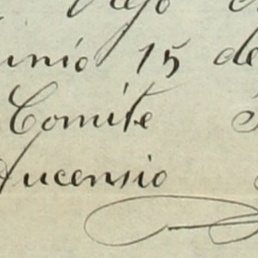 unio 15 de
Comite
ucensio